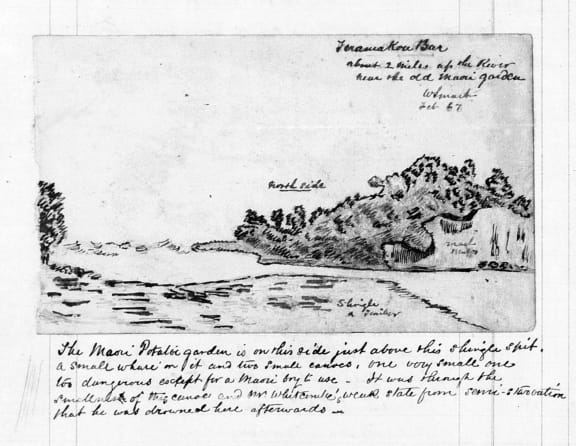 Teramakou Bar
about 2 miles up the River
near the old Maori garden
W Smart
Feb 67
North side
Shingle
The Maori Potatoe garden is on this side just above this shingle spit.
a small whare on it and two small canoes, one very small one
too dangerous except for a Maori boy to use — It was through the
smallness of this canoe and Mr Whitcombe's weak state from semi-starvation
that he was drowned here afterwards —